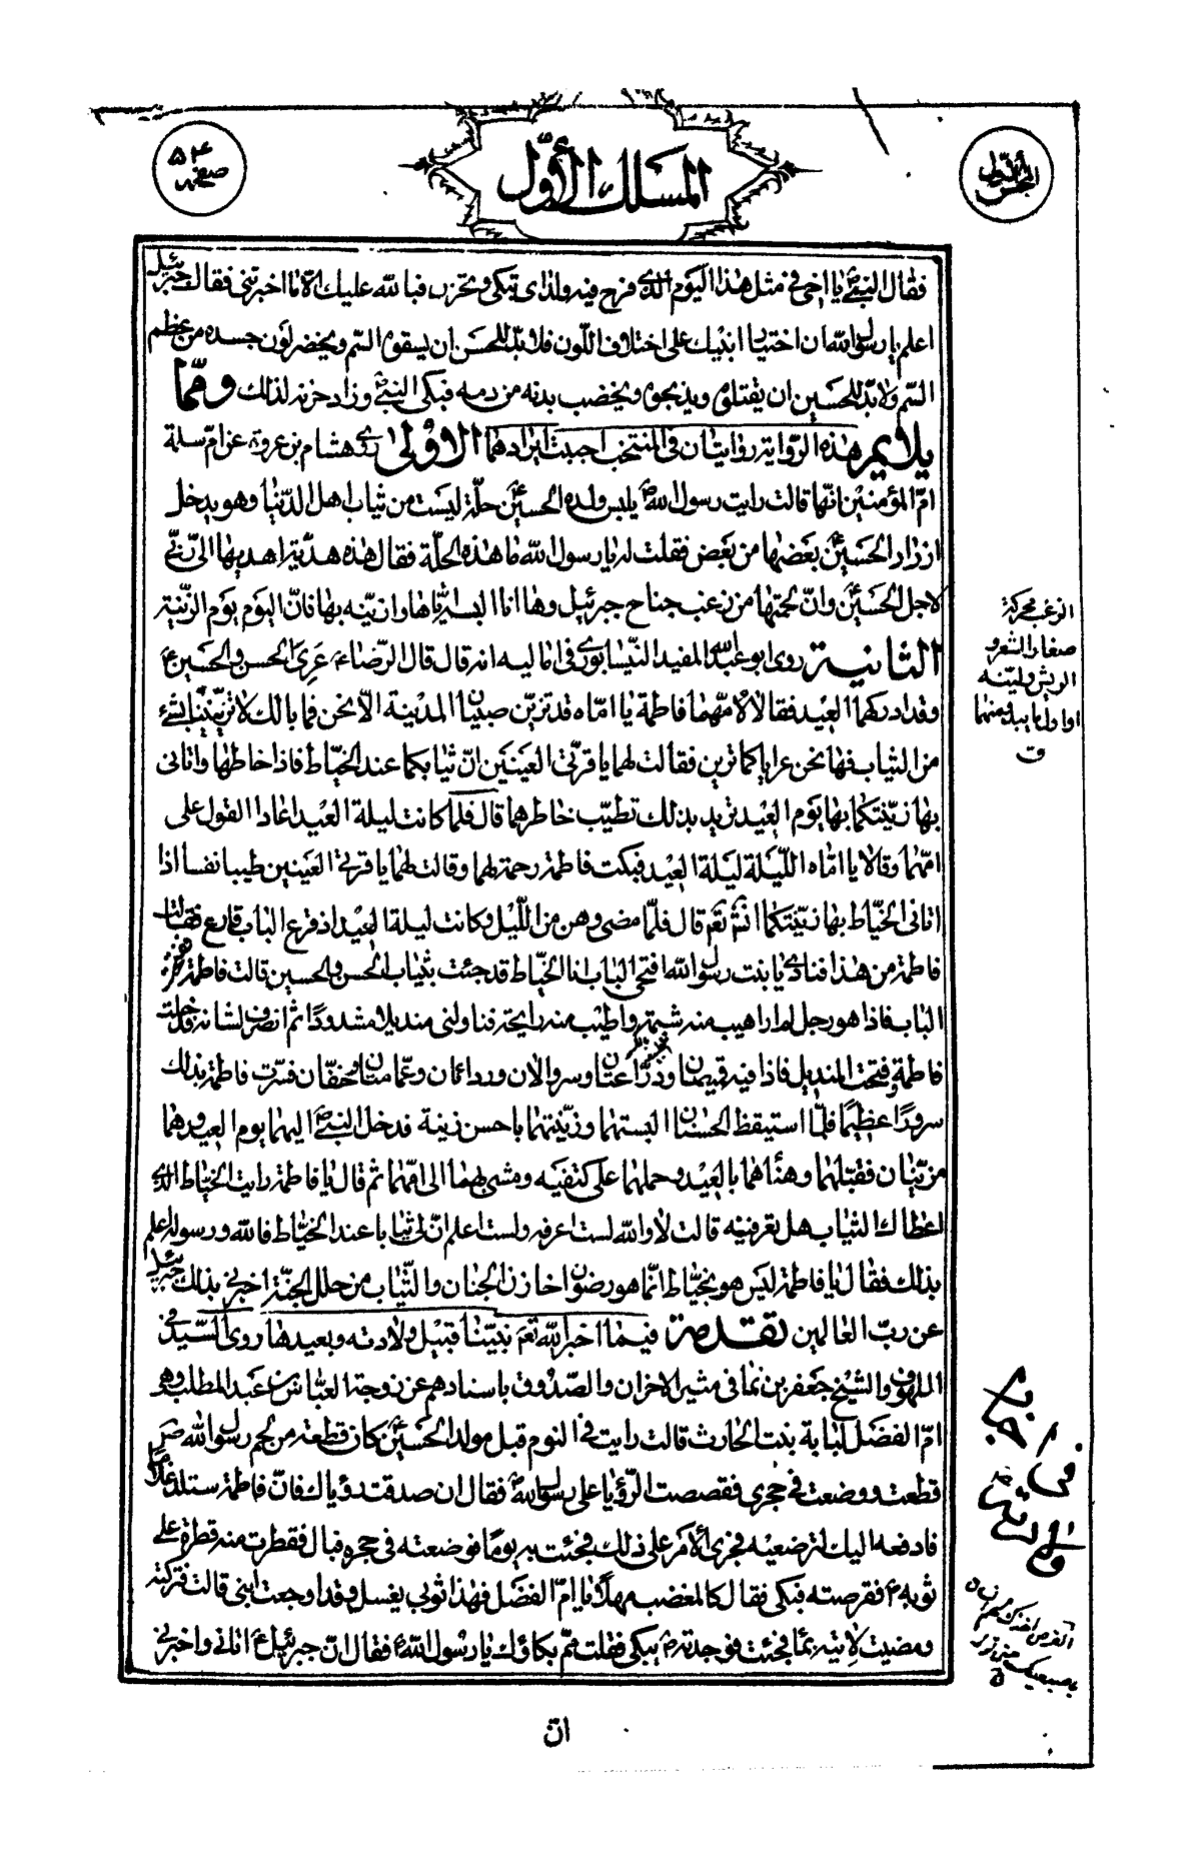 المجلس الأول
المسلك الأول
صفحه ۵۴
فقال النبي ص يا اخى فى مثل هذا اليوم الذى فرح فيه ولداى تبكى وتحزن فبالله عليك الا ما اخبرتنى فقال جبرئيل
اعلم يا رسول الله ان اختيار ابنيك على اختلاف اللون فلا بد للحسن ان يسقوه السم ويخضر لون جسده من عظم
السم ولا بد للحسين ان يقتلوه ويذبحوه ويخضب بدنه من دمه فبكى النبى ص وزاد حزنه لذلك ومما
يلايم هذه الرواية روايتان فى المنتخب احببت ايرادهما الاولى روى هشام بن عروة عن ام سلمة
ام المؤمنين انها قالت رايت رسول الله ص يلبس ولده الحسين ع حلة ليست من ثياب اهل الدنيا وهو يدخل
ازرار الحسين ع بعضها من بعض فقلت له يا رسول الله ما هذه الحلة فقال هذه هدية اهديها الى ربى
لاجل الحسين ع وان لحمتها من زغب جناح جبرئيل وها انا البسه اياها وازينه بها فان اليوم يوم الزينة
الثانية روى ابو عبد الله المفيد النيسابورى فى اماليه انه قال قال الرضا ع عرى الحسن والحسين ع
وقد ادركهما العيد فقالا لامهما فاطمة يا اماه قد تزين صبيان المدينة الا نحن فما بالك لا تزينينا بشىء
من الثياب فها نحن عرايا كما ترين فقالت لهما يا قرتى العينين ان ثيابكما عند الخياط فاذا خاطها واتانى
بها زينتكما بها يوم العيد تريد بذلك تطيب خاطرهما قال فلما كانت ليلة العيد اعادا القول على
امهما وقالا يا اماه الليلة ليلة العيد فبكت فاطمة رحمة لهما وقالت لهما يا قرتى العينين طيبا نفسا اذا
اتانى الخياط بها زينتكما انشاء الله تعم قال فلما مضى وهن من الليل وكانت ليلة العيد اذ قرع الباب قارع فقالت
فاطمة من هذا فنادى يا بنت رسول الله افتحى الباب انا الخياط قد جئت بثياب الحسن والحسين قالت فاطمة ففتحت
الباب فاذا هو رجل لم ار اهيب منه شيمة واطيب منه رايحة فناولنى منديلا مشدودا ثم انصرف لشانه فدخلت
فاطمة وفتحت المنديل فاذا فيه قميصان ودراعتان وسروالان وردائان وعمامتان وخفان فسرت فاطمة بذلك
سرورا عظيما فلما استيقظ الحسنان البستهما وزينتهما باحسن زينة فدخل النبى ص اليهما يوم العيد وهما
مزينان فقبلهما وهنأهما بالعيد وحملهما على كتفيه ومشى بهما الى امهما ثم قال يا فاطمة رايت الخياط الذى
اعطاك الثياب هل تعرفينه قالت لا والله لست اعرفه ولست اعلم ان لى ثيابا عند الخياط فالله ورسوله اعلم
بذلك فقال يا فاطمة ليس هو بخياط انما هو رضوان خازن الجنان والثياب من حلل الجنة اخبرنى بذلك جبرئيل
عن رب العالمين تقدمة فيما اخبر الله تعم نبينا قبيل ولادته وبعيدها روى السيد فى
الملهوف والشيخ جعفر بن نما فى مثير الاحزان والصدوق باسنادهم عن زوجة العباس بن عبد المطلب وهى
ام الفضل لبابة بنت الحارث قالت رايت فى النوم قبل مولد الحسين ع كان قطعة من لحم رسول الله ص
قطعت ووضعت فى حجرى فقصصت الرؤيا على رسول الله ص فقال ان صدقت رؤياك فان فاطمة ستلد غلاما
فادفعه اليك لترضعيه فجرى الامر على ذلك فجئت به يوما فوضعته فى حجره فبال فقطرت منه قطرة على
ثوبه ع فقرصته فبكى فقال كالمغضب مهلا يا ام الفضل فهذا ثوبى يغسل وقد اوجعت ابنى قالت فتركته
ومضيت لاتيه بما فجئت فوجدته ص يبكى فقلت مم بكاؤك يا رسول الله ص فقال ان جبرئيل ع اتانى واخبرنى
الزغب محركة
صغار الشعر و
الريش ولينه
او اول ما يبدو منهما
ق
فى
القرص اخذك
باصبعيك
ق
ان